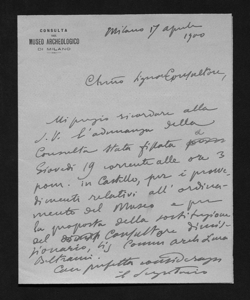 CONSULTA
DEL
MUSEO ARCHEOLOGICO
DI MILANO
Milano 17 aprile
1900
Chiṁo Signor Consultore,
Mi pregio ricordare alla
S. V. l'adunanza della
Consulta stata fissata a
Giovedì 19 corrente alle ore 3
pom. in Castello, per i provve-
dimenti relativi all'ordina-
mento del Museo e per
la proposta della sostituzione
del Consultore dimis-
sionario, Sig. Comm. arch. Luca
Beltrami.
Con perfetta considerazione
il Segretario